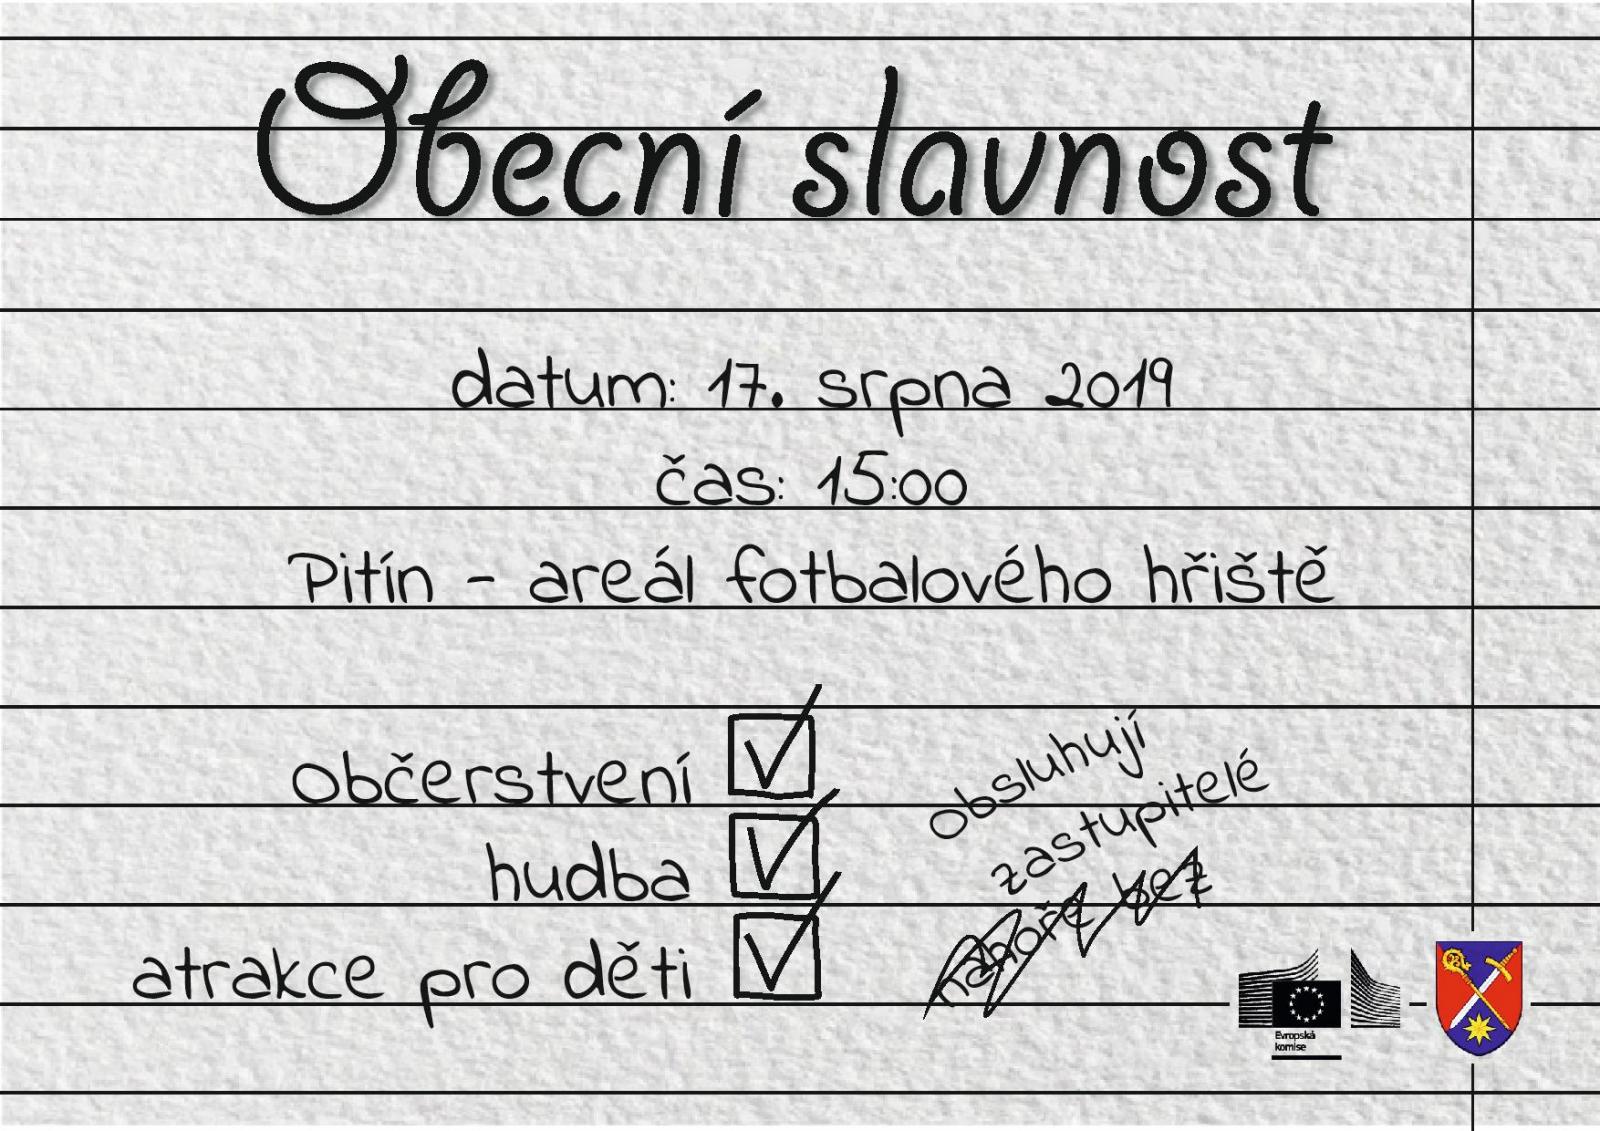 Obecní slavnost
datum: 17. srpna 2019
čas: 15:00
Pitín - areál fotbalového hřiště
občerstvení
hudba
atrakce pro děti
obsluhují
zastupitelé
nahoře bez
Evropská
komise